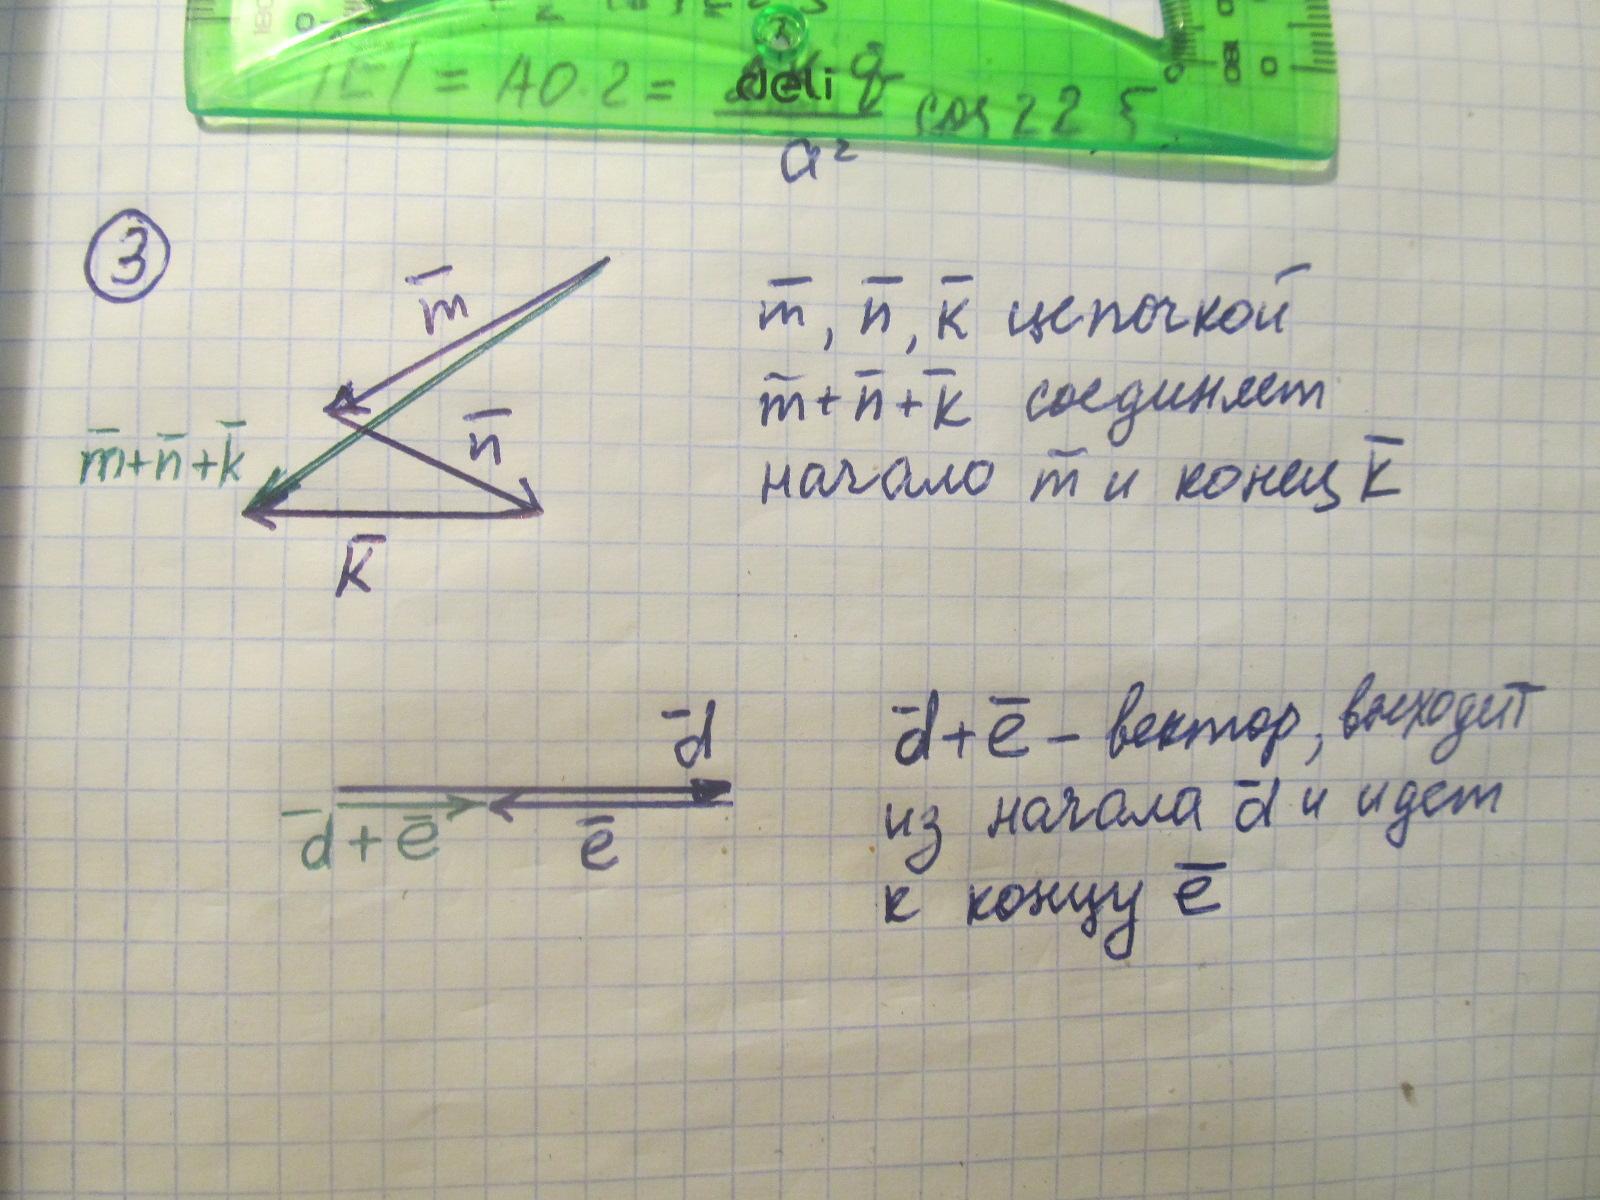 |E| = AO·2 = q cos 22 5
deli
a²
3
m̅
m̅, n̅, k̅ цепочкой
m̅+n̅+k̅ соединяет
n̅
m̅+n̅+k̅
начало m̅ и конец k̅
k̅
d̅
d̅+e̅ – вектор, выходит
d̅+e̅
e̅
из начала d̅ и идет
к концу e̅